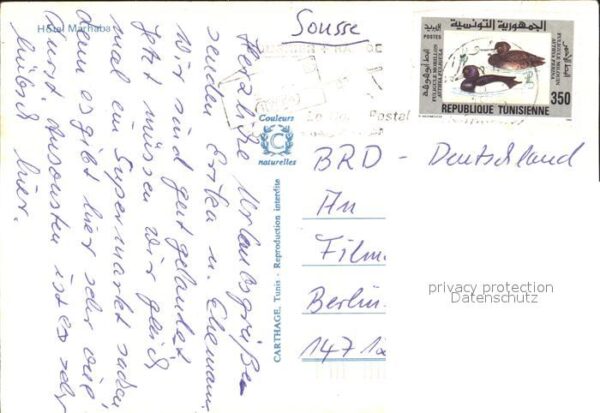 Hotel Marhaba
Sousse
Herzliche Urlaubsgrüße
senden Erika u. Ehemann
Wir sind gut gelandet
Jetzt müssen wir gleich
mal ein Supermarkt suchen,
denn es gibt hier sehr viel
Durst. Ansonsten ist es sehr
hübsch hier.
Couleurs
C
naturelles
CARTHAGE, Tunis - Reproduction interdite
الجمهورية التونسية
POSTES
FULIGULE MORILLON
AYTHYA FULIGULA
350
REPUBLIQUE TUNISIENNE
Postal
BRD - Deutschland
An
Film
Berlin
1471
privacy protection
Datenschutz